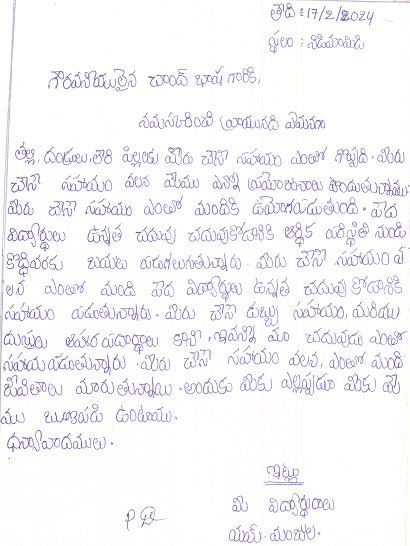 తాది : 17/2/2024
స్థలం : నిడిమామిడి
గౌరవనీయులైన చాంద్ భాష గారికి,
నమస్కరించి వ్రాయునది ఏమనగా
తల్లి, దండ్రులు, తారి పిల్లలకు మీరు చేసే సహాయం ఎంతో గొప్పది. మీరు
చేసే సహాయం వలన మేము ఎన్నో ప్రయోజనాలు పొందుతున్నాము
మీరు చేసే సహాయం ఎంతో మందికి ఉపయోగపడుతుంది. పేద
విద్యార్థులు ఉన్నత చదువు చదువుకోడానికి ఆర్థిక పరిస్థితి నుండి
కొద్దివరకు బయట పడుగలుగుతున్నారు. మీరు చేసే సహాయం వ
లన ఎంతో మంది పేద విద్యార్థులు ఉన్నత చదువుకోడానికి
సహాయం పడుతున్నారు. మీరు చేసే డబ్బు సహాయం, మరియు
దుస్తులు ఆహార పదార్థాలు కానీ, ఇవన్నీ మా చదువుకు ఎంతో
సహాయపడుతున్నారు. మీరు చేసే సహాయం వలన, ఎంతో మంది
జీవితాలు మారుతున్నాయి. అందుకు మీకు ఎల్లప్పుడూ మీకు మే
ము ఋణపడి ఉంటాము.
ధన్యావాదములు.
ఇట్లు
మీ విద్యార్థురాలు
యమ్. మంజుల.